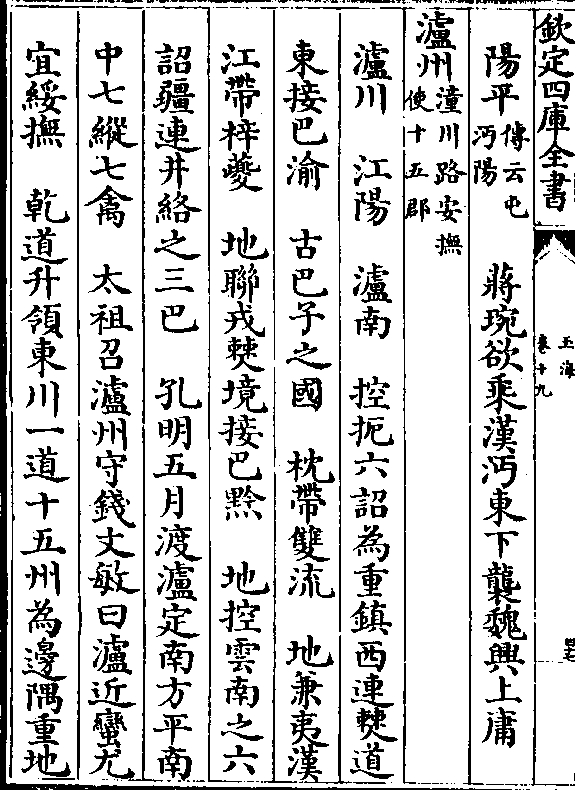 欽定四庫全書
玉海
卷十九
陽平傳云屯沔陽　蔣琬欲乘漢沔東下襲魏興上庸
瀘州潼川路安撫使十五郡
瀘川　江陽　瀘南　控扼六詔為重鎮西連僰道
東接巴渝　古巴子之國　枕帶雙流　地兼夷漢
江帶梓夔　地聯戎僰境接巴黔　地控雲南之六
詔疆連井絡之三巴　孔明五月渡瀘定南方平南
中七縱七禽　太祖召瀘州守錢文敏曰瀘近蠻尤
宜綏撫　乾道升領東川一道十五州為邊隅重地